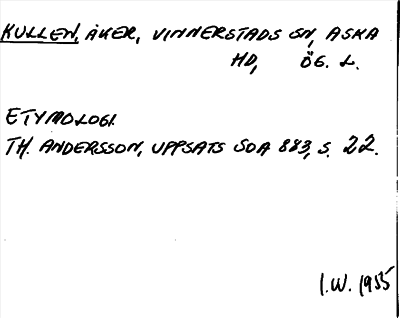 KULLEN, ÅKER, VINNERSTADS SN, ASKA
HD, ÖG. L.
ETYMOLOGI.
TH. ANDERSSON, UPPSATS SOA 883, S. 22.
I.W. 1955